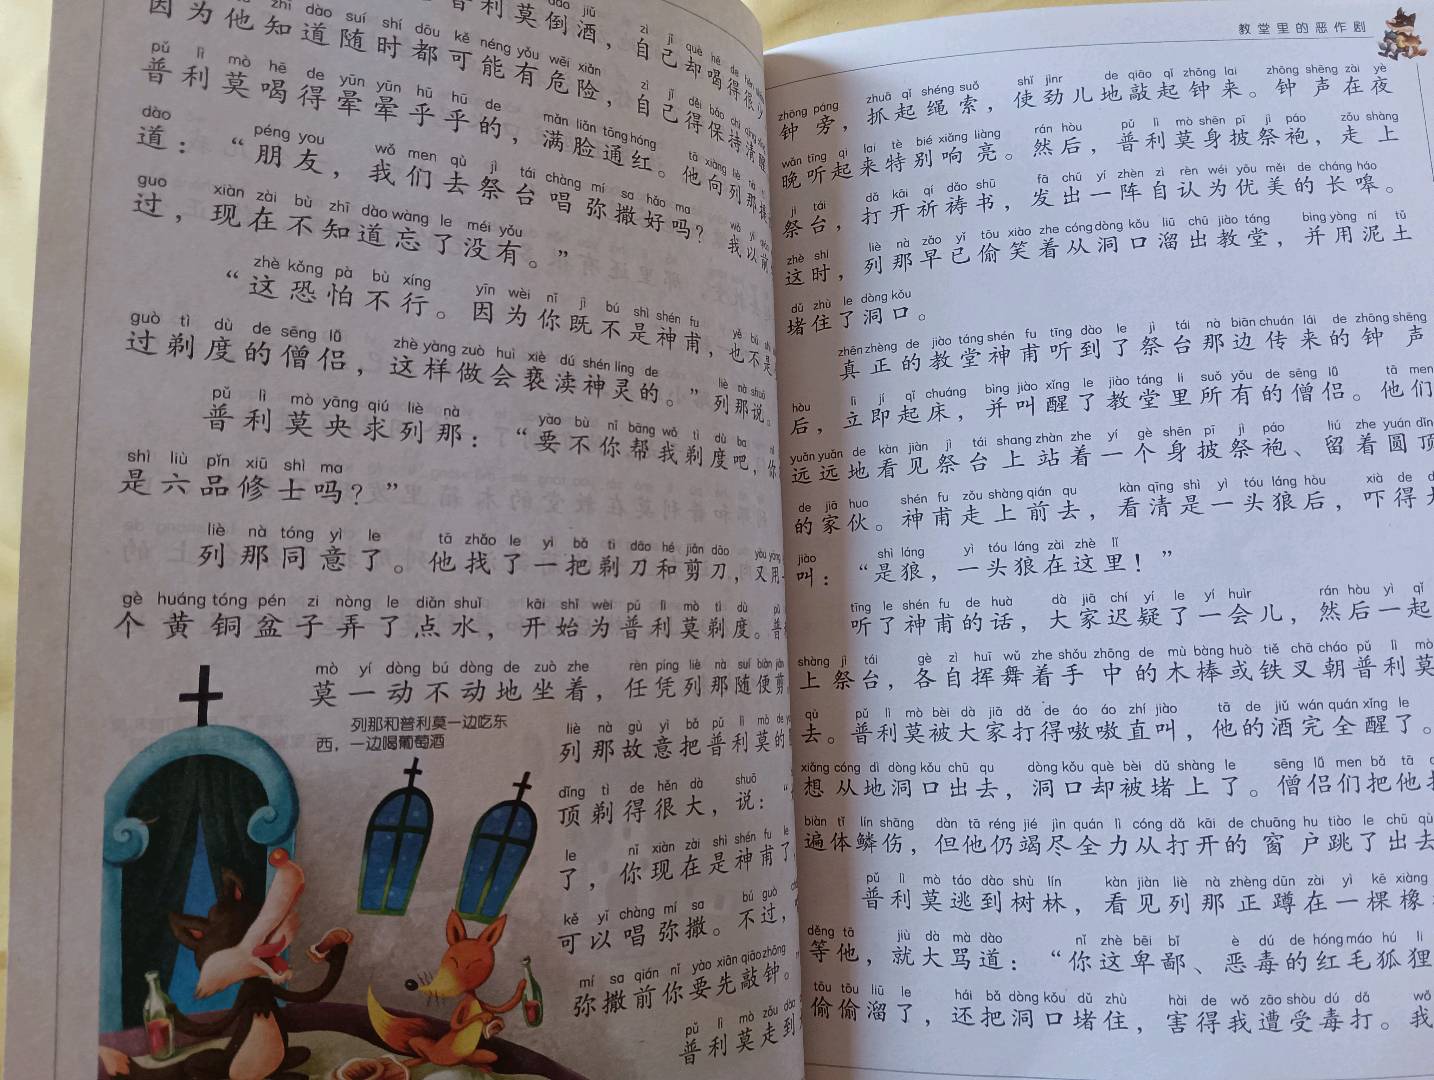 普利莫倒酒，自己却喝得很少
因为他知道随时都可能有危险，自己得保持清醒
普利莫喝得晕晕乎乎的，满脸通红。他向列那提
道：“朋友，我们去祭台唱弥撒好吗？我以前
过，现在不知道忘了没有。”
“这恐怕不行。因为你既不是神甫，也不是
过剃度的僧侣，这样做会亵渎神灵的。”列那说。
普利莫央求列那：“要不你帮我剃度吧，你
是六品修士吗？”
列那同意了。他找了一把剃刀和剪刀，又用
个黄铜盆子弄了点水，开始为普利莫剃度。普
莫一动不动地坐着，任凭列那随便剪
列那故意把普利莫的
顶剃得很大，说：“
了，你现在是神甫了
可以唱弥撒。不过，
弥撒前你要先敲钟。
普利莫走到
列那和普利莫一边吃东
西，一边喝葡萄酒
教堂里的恶作剧
钟旁，抓起绳索，使劲儿地敲起钟来。钟声在夜
晚听起来特别响亮。然后，普利莫身披祭袍，走上
祭台，打开祈祷书，发出一阵自认为优美的长嚎。
这时，列那早已偷笑着从洞口溜出教堂，并用泥土
堵住了洞口。
真正的教堂神甫听到了祭台那边传来的钟声
后，立即起床，并叫醒了教堂里所有的僧侣。他们
远远地看见祭台上站着一个身披祭袍、留着圆顶
的家伙。神甫走上前去，看清是一头狼后，吓得大
叫：“是狼，一头狼在这里！”
听了神甫的话，大家迟疑了一会儿，然后一起
上祭台，各自挥舞着手中的木棒或铁叉朝普利莫
去。普利莫被大家打得嗷嗷直叫，他的酒完全醒了。
想从地洞口出去，洞口却被堵上了。僧侣们把他打
遍体鳞伤，但他仍竭尽全力从打开的窗户跳了出去
普利莫逃到树林，看见列那正蹲在一棵橡
等他，就大骂道：“你这卑鄙、恶毒的红毛狐狸
偷偷溜了，还把洞口堵住，害得我遭受毒打。我